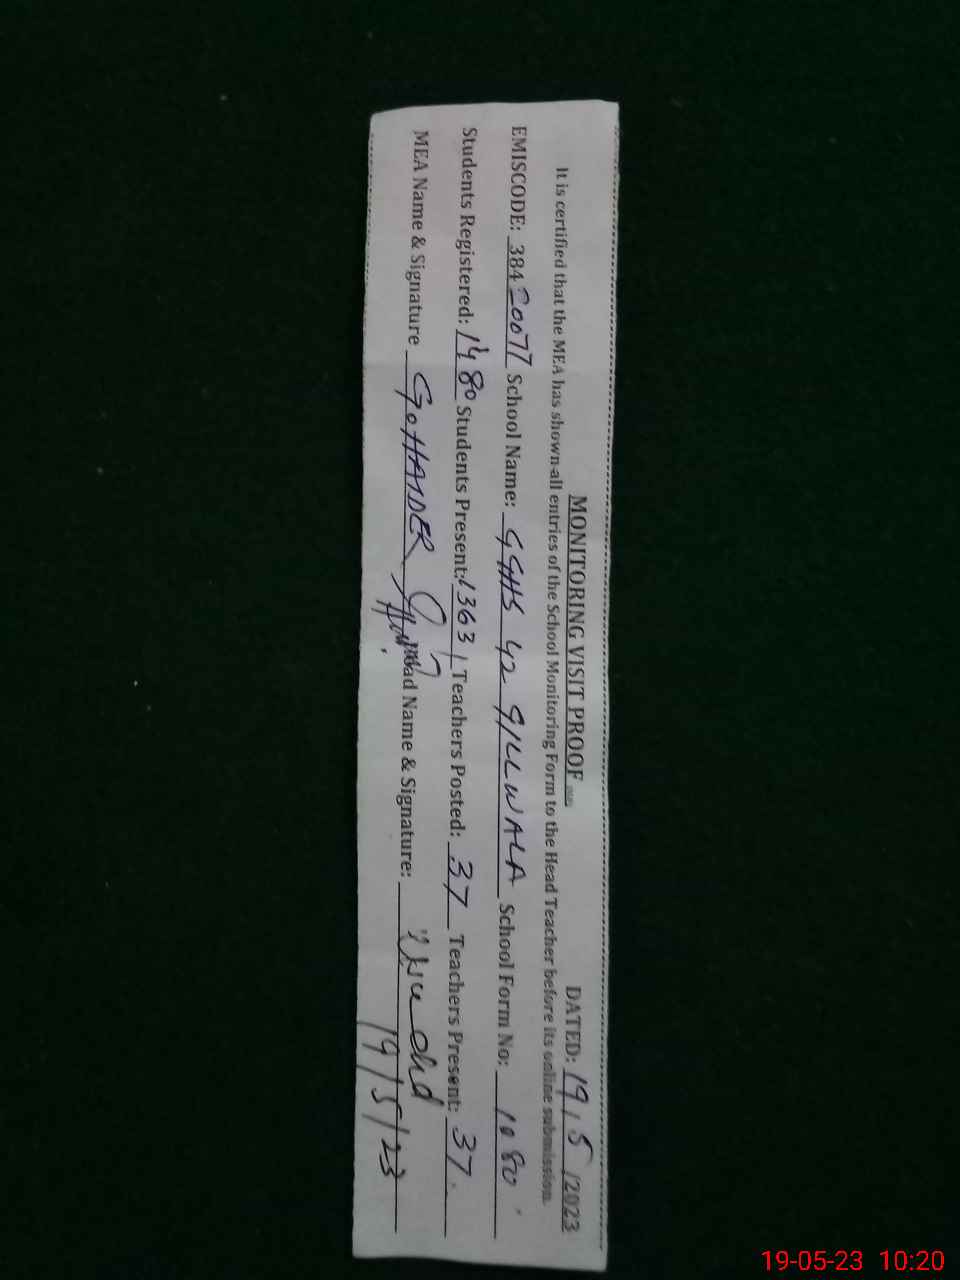 MONITORING VISIT PROOF DATED: 19/5/2023
It is certified that the MEA has shown all entries of the School Monitoring Form to the Head Teacher before its online submission.
EMISCODE: 38420077 School Name: GGHS 42 GILLWALA School Form No: 1080
Students Registered: 1480 Students Present: 1363 Teachers Posted: 37 Teachers Present: 37.
MEA Name & Signature G. HAIDER Head Name & Signature:
19/5/23
19-05-23 10:20